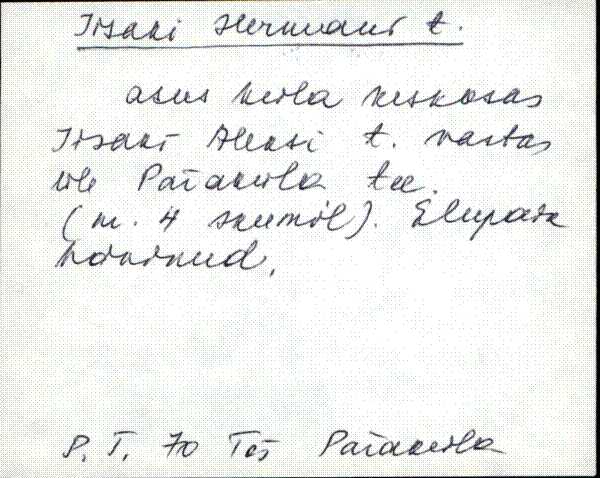 Iisaki Hermani t.
asus küla keskosas
Iisaki Aleksi t. vastas
üle Päraküla tee.
(nr. 4 skeemil). Elupaik
hävinud.
P. T. 70 Päraküla